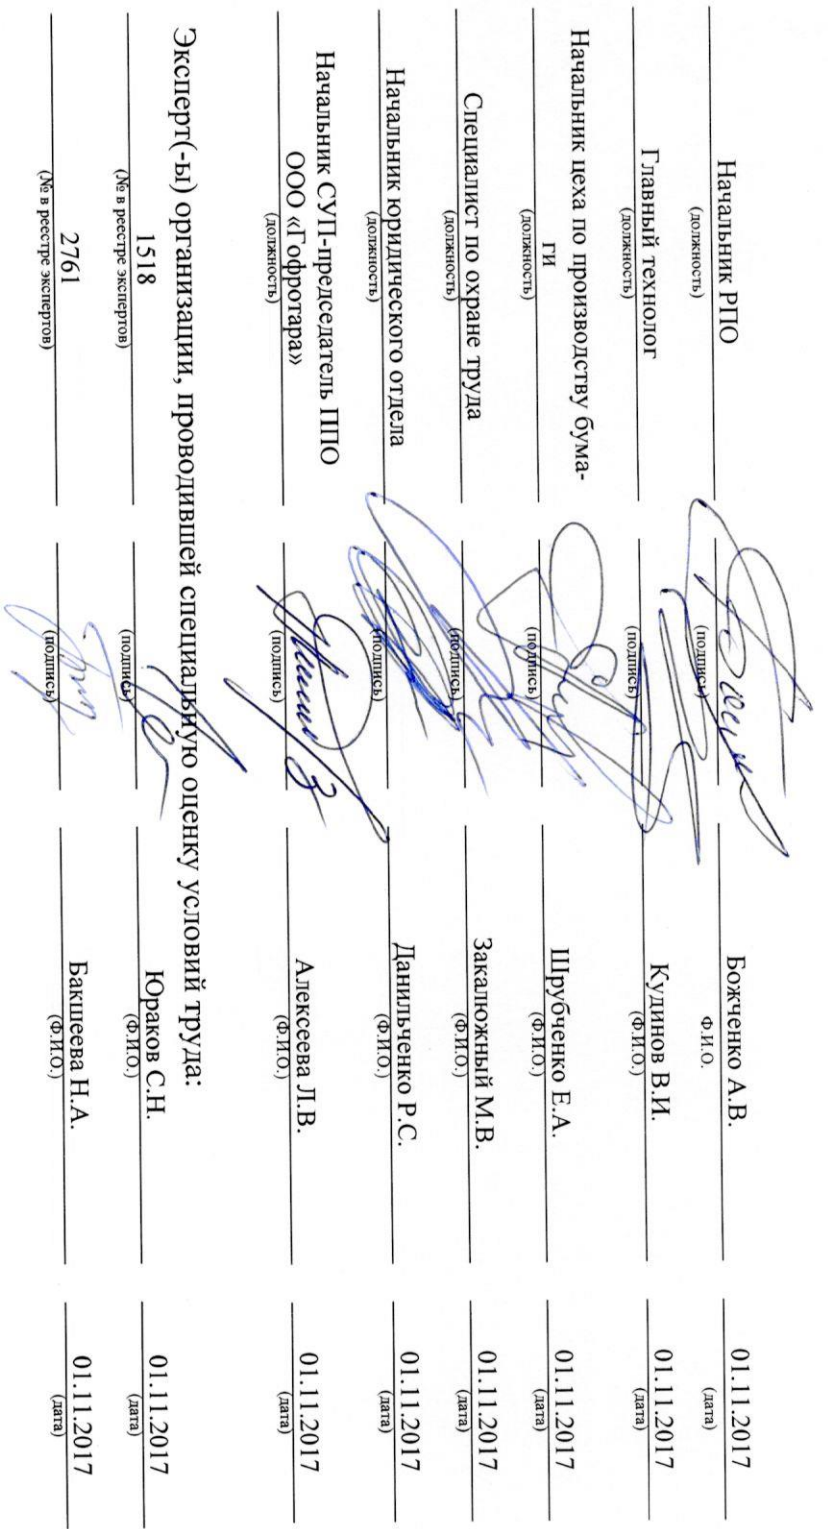 Начальник РПО Божченко А.В. 01.11.2017
(должность) (подпись) Ф.И.О. (дата)
Главный технолог Кудинов В.И. 01.11.2017
(должность) (подпись) (Ф.И.О.) (дата)
Начальник цеха по производству бума-
ги Шрубченко Е.А. 01.11.2017
(должность) (подпись) (Ф.И.О.) (дата)
Специалист по охране труда Закалюжный М.В. 01.11.2017
(должность) (подпись) (Ф.И.О.) (дата)
Начальник юридического отдела Данильченко Р.С. 01.11.2017
(должность) (подпись) (Ф.И.О.) (дата)
Начальник СУП-председатель ППО
ООО «Гофротара» Алексеева Л.В. 01.11.2017
(должность) (подпись) (Ф.И.О.) (дата)
Эксперт(-ы) организации, проводившей специальную оценку условий труда:
1518 Юраков С.Н. 01.11.2017
(№ в реестре экспертов) (подпись) (Ф.И.О.) (дата)
2761 Бакшеева Н.А. 01.11.2017
(№ в реестре экспертов) (подпись) (Ф.И.О.) (дата)